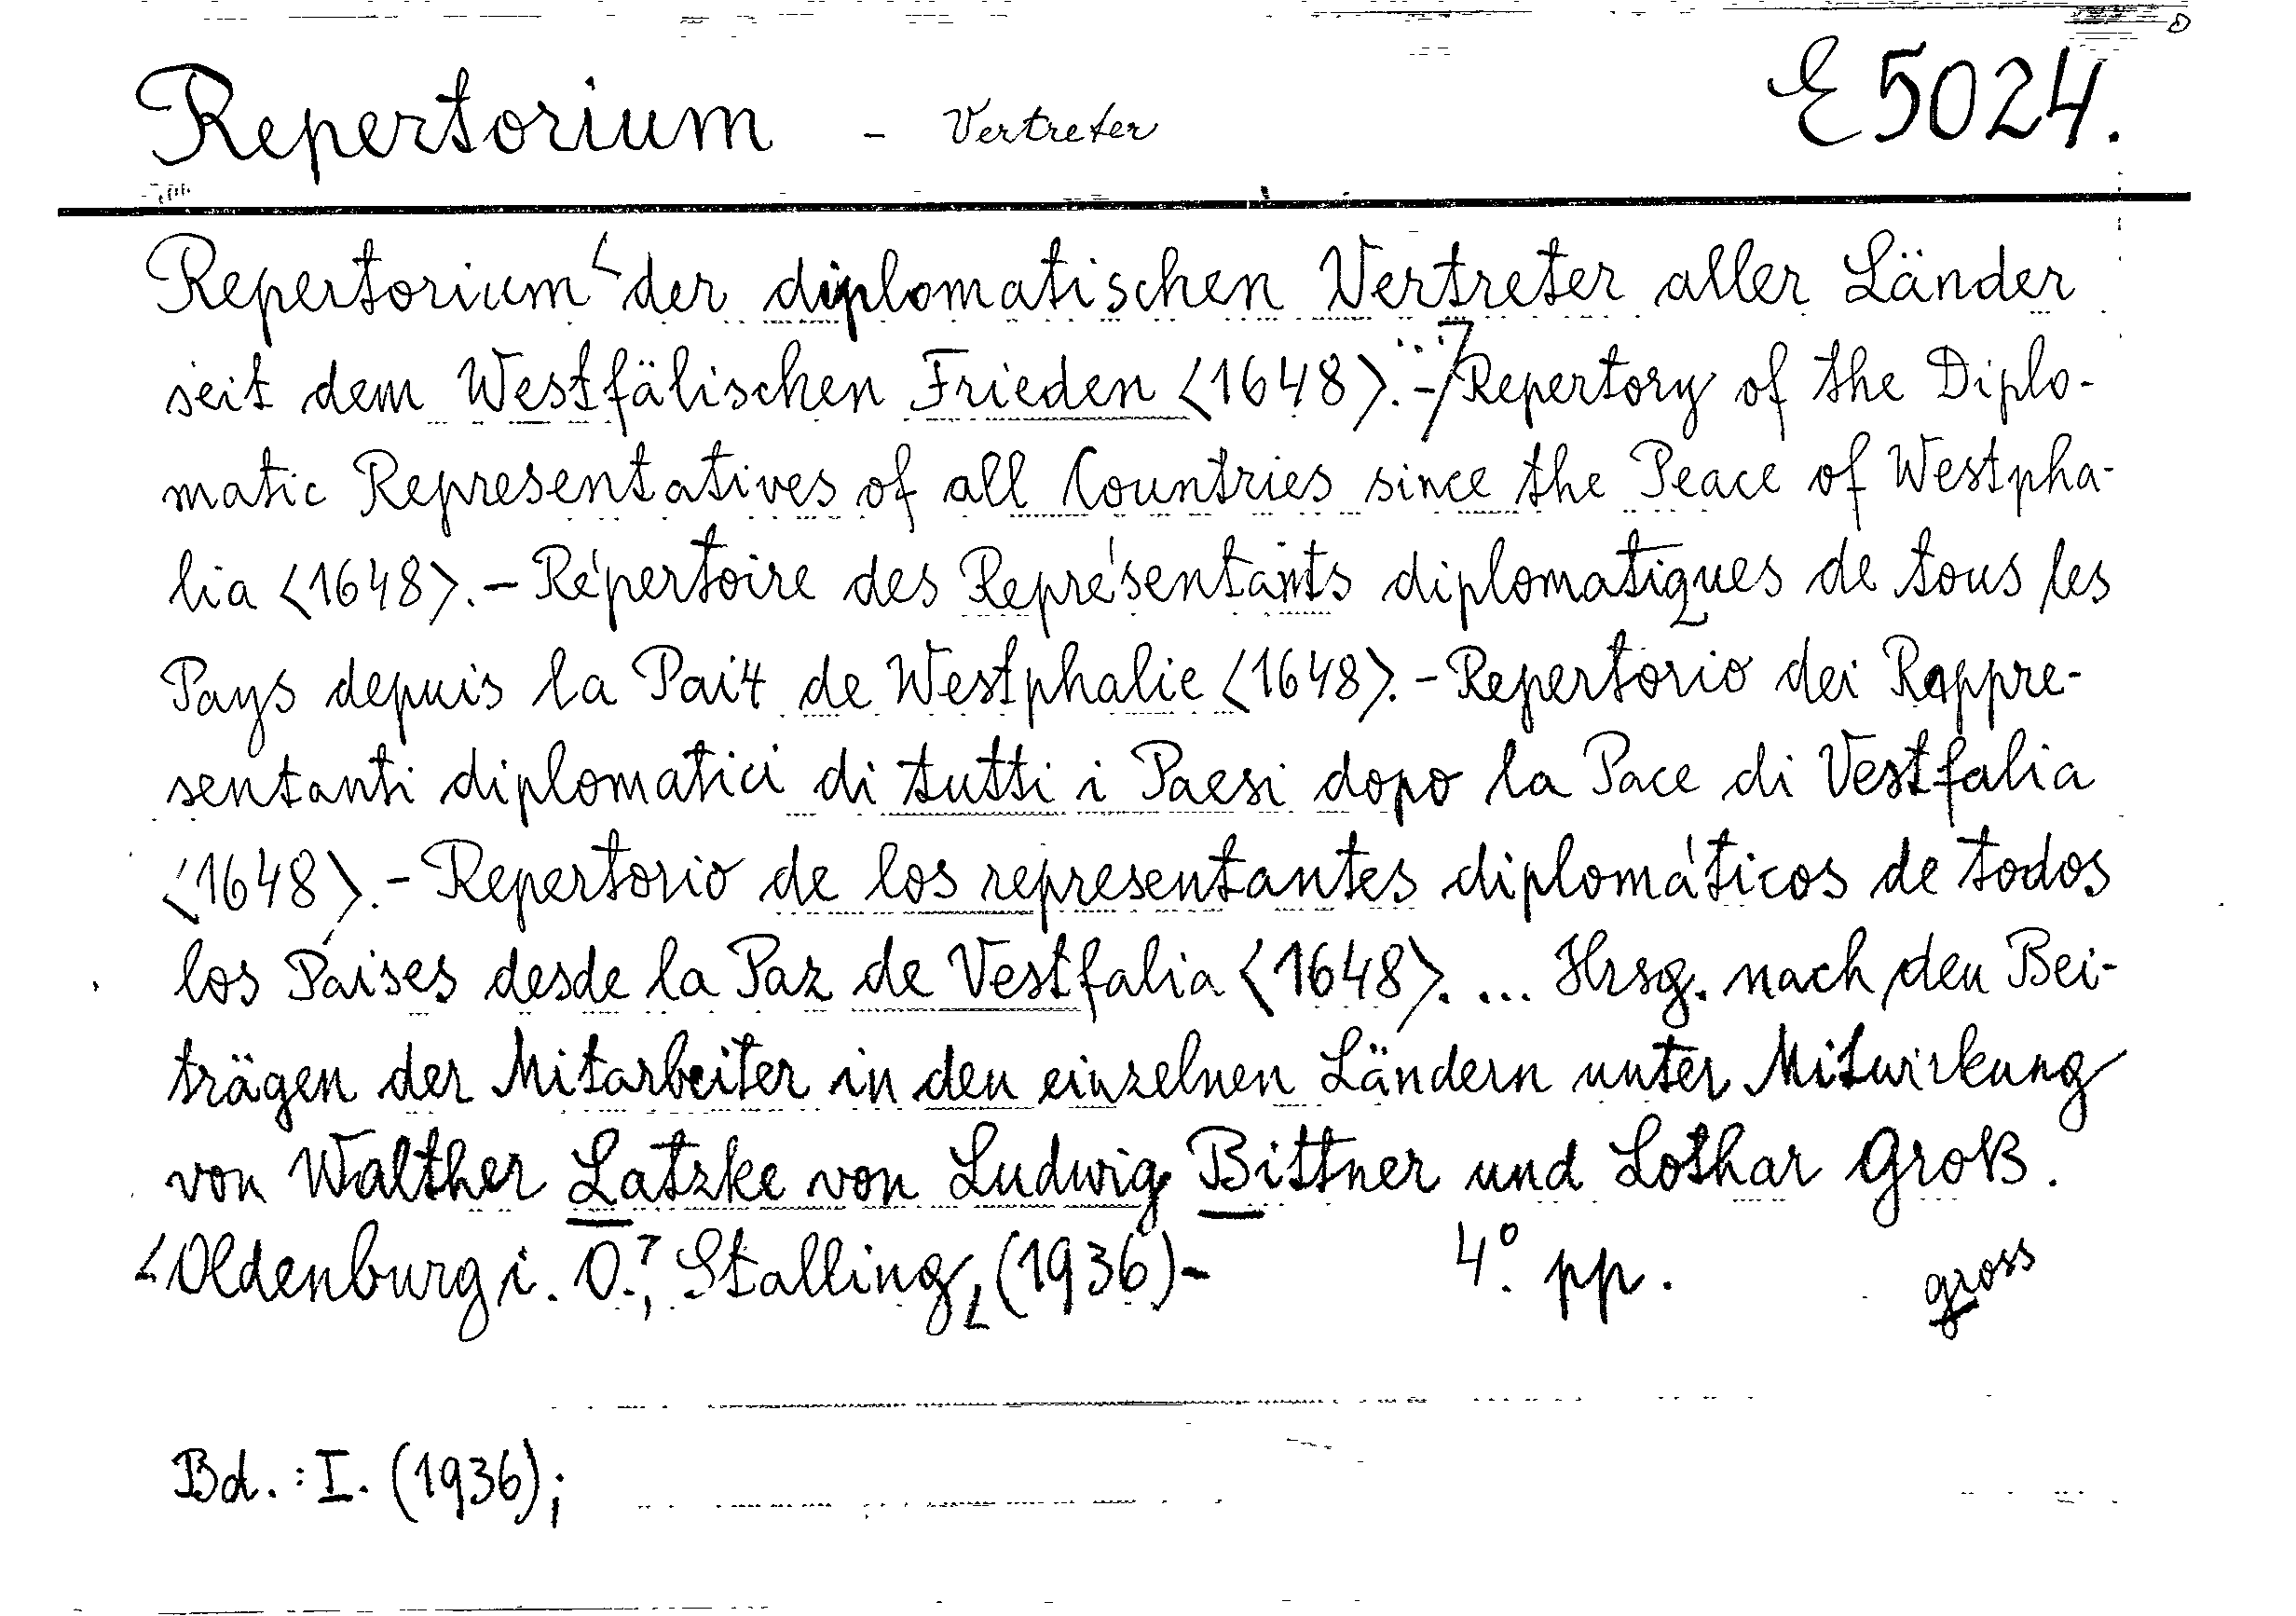 Repertorium - Vertreter E 5024.
Repertorium der diplomatischen Vertreter aller Länder
seit dem Westfälischen Frieden <1648>. - Repertory of the Diplo-
matic Representatives of all Countries since the Peace of Westpha-
lia <1648>. - Répertoire des Représentants diplomatiques de tous les
Pays depuis la Paix de Westphalie <1648>. - Repertorio dei Rappre-
sentanti diplomatici di tutti i Paesi dopo la Pace di Vestfalia
<1648>. - Repertorio de los representantes diplomáticos de todos
los Países desde la Paz de Vestfalia <1648>. ... Hrsg. nach den Bei-
trägen der Mitarbeiter in den einzelnen Ländern unter Mitwirkung
von Walther Latzke von Ludwig Bittner und Lothar Groß.
<Oldenburg i. O.>, Stalling, (1936)- 4°. pp. gross
Bd.: I. (1936);